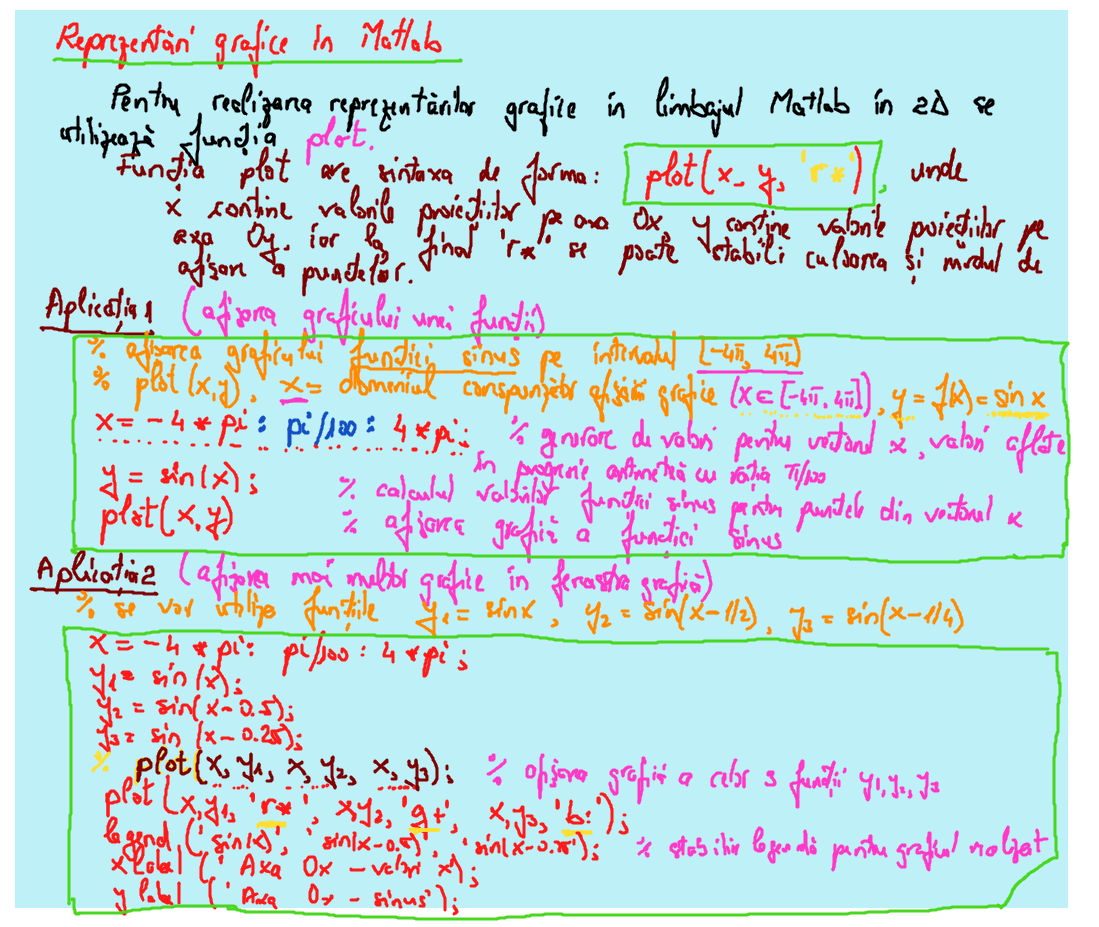 Reprezentări grafice în Matlab
Pentru realizarea reprezentărilor grafice în limbajul Matlab în 2D se
utilizează funcția plot.
Funcția plot are sintaxa de forma: plot(x, y, 'r*'), unde
x conține valorile proiecțiilor pe axa Ox, y conține valorile proiecțiilor pe
axa Oy, iar la final 'r*' se poate stabili culoarea și modul de
afișare a punctelor.
Aplicația1 (afișarea graficului unei funcții)
% afișarea graficului funcției sinus pe intervalul [-4π, 4π]
% plot(x,y), x = domeniul corespunzător afișării grafice (x∈[-4π, 4π]), y = f(x) = sin x
x = -4 * pi : pi/100 : 4 * pi; % generare de valori pentru vectorul x, valori aflate
în progresie aritmetică cu rația π/100
y = sin(x); % calculul valorilor funcției sinus pentru punctele din vectorul x
plot(x,y) % afișarea grafică a funcției sinus
Aplicația2 (afișarea mai multor grafice în fereastra grafică)
% se vor utiliza funcțiile y1 = sinx, y2 = sin(x-1/2), y3 = sin(x-1/4)
x = -4 * pi : pi/100 : 4 * pi;
y1 = sin(x);
y2 = sin(x-0.5);
y3 = sin(x-0.25);
% plot(x, y1, x, y2, x, y3); % afișarea grafică a celor 3 funcții y1, y2, y3
plot(x,y1, 'r*', x,y2, 'g+', x,y3, 'b:');
legend('sin(x)', 'sin(x-0.5)', 'sin(x-0.25)'); % stabilire legendă pentru graficul realizat
xlabel('Axa Ox - valori x');
ylabel('Axa Oy - sinus');